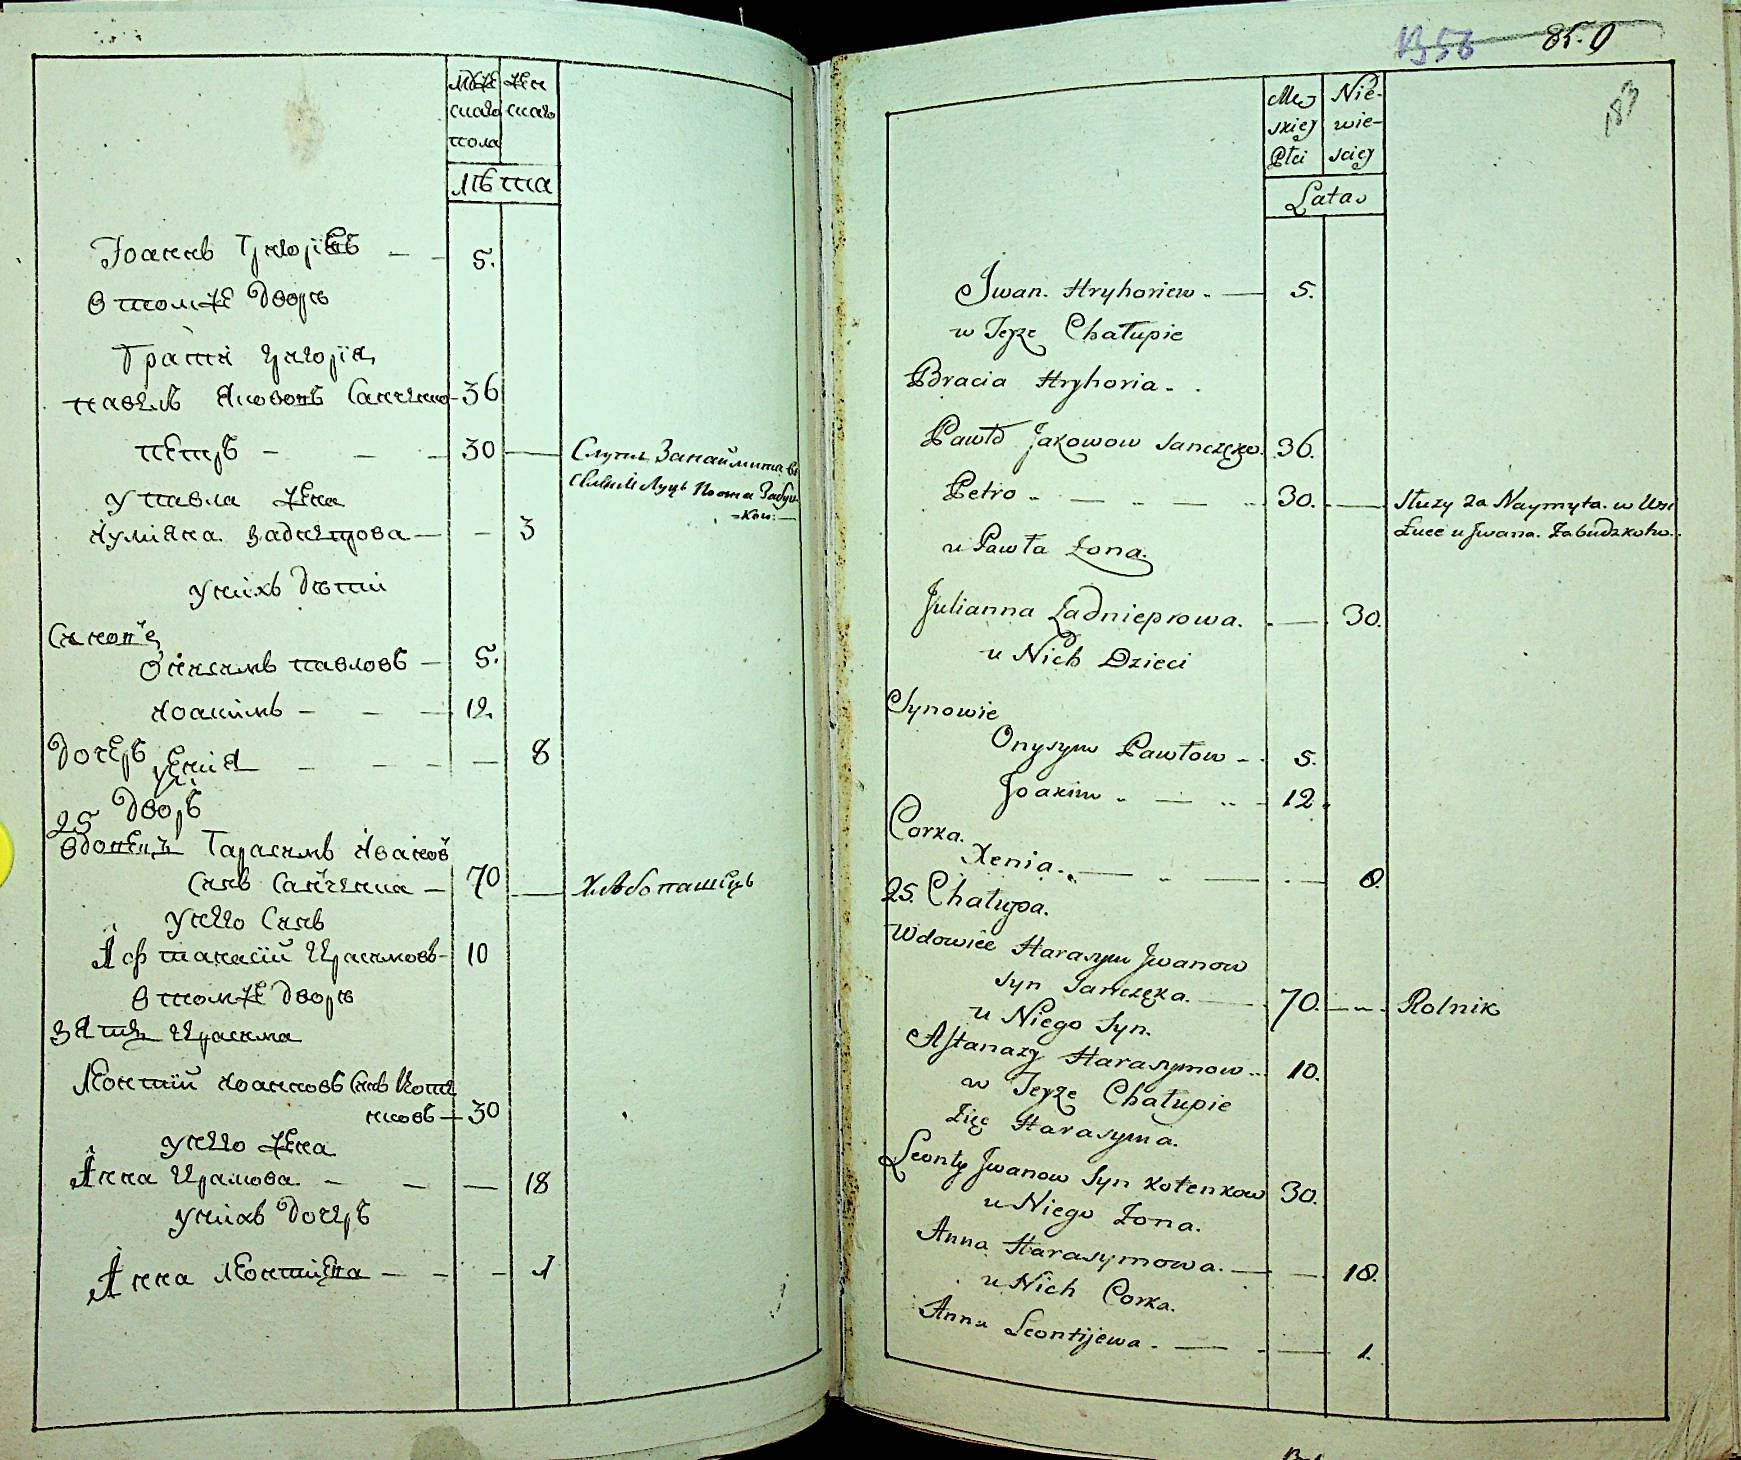 мꙋже
скаго
пола
жен
скаго
лѣта
Іоаннъ Григоріевъ — — 5.
в томже дворѣ
Братя Григорія
павелъ Якововъ Санченко — 36
петръ — — — 30 — Слꙋжи за наймита въ
селѣ Луцѣ
у павла жена
Иулияна Заднепрова — — 3
у нихъ дѣти
Синовѣ
Онисимъ павловъ — 5.
Иоакимъ — — — 12
дочерь
Ксенія — — — — 8
25 дворъ
вдовецъ Гарасимъ Ивановъ
синъ Санченка — 70 — Хлѣбопашецъ
у него Синъ
Афтанасій Гарасимовъ — 10
в томже дворѣ
зять Герасима
Леонтий Иоанновъ Синъ Коте
нковъ — 30
у него жена
Анна Герасимова — — — 18
у нихъ дочерь
Анна Леонтиева — — — 1
1356 85. 9
183
Mę
skiej
Płci
Nie-
wie-
sciej
Lata
Iwan. Hryhoriew. — 5.
w Teyże Chałupie
Bracia Hryhoria - .
Pawło Jakowow Sanczęko. 36.
Petro - — - — - 30. — Służy za Naymyta. w Wsi
Łuce u Jwana. Zabudzkoho.
u Pawła Żona.
Julianna Zadnieprowa. - — 30.
u Nich Dzieci
Synowie
Onysym Pawłow - . 5.
Joakim - — - 12.
Corka.
Xenia. — - — - — 8.
25. Chałupa.
Wdowiec Harasym Jwanow
syn Sanczęka. — 70. — Rolnik
u Niego Syn.
Aftanazy Harasymow - 10.
w Teyże Chałupie
Zięć Harasyma.
Leonty Jwanow Syn Kotenkow 30.
u Niego Żona.
Anna Harasymowa. — — 18.
u Nich Corka.
Anna Leontijewa. — — 1.